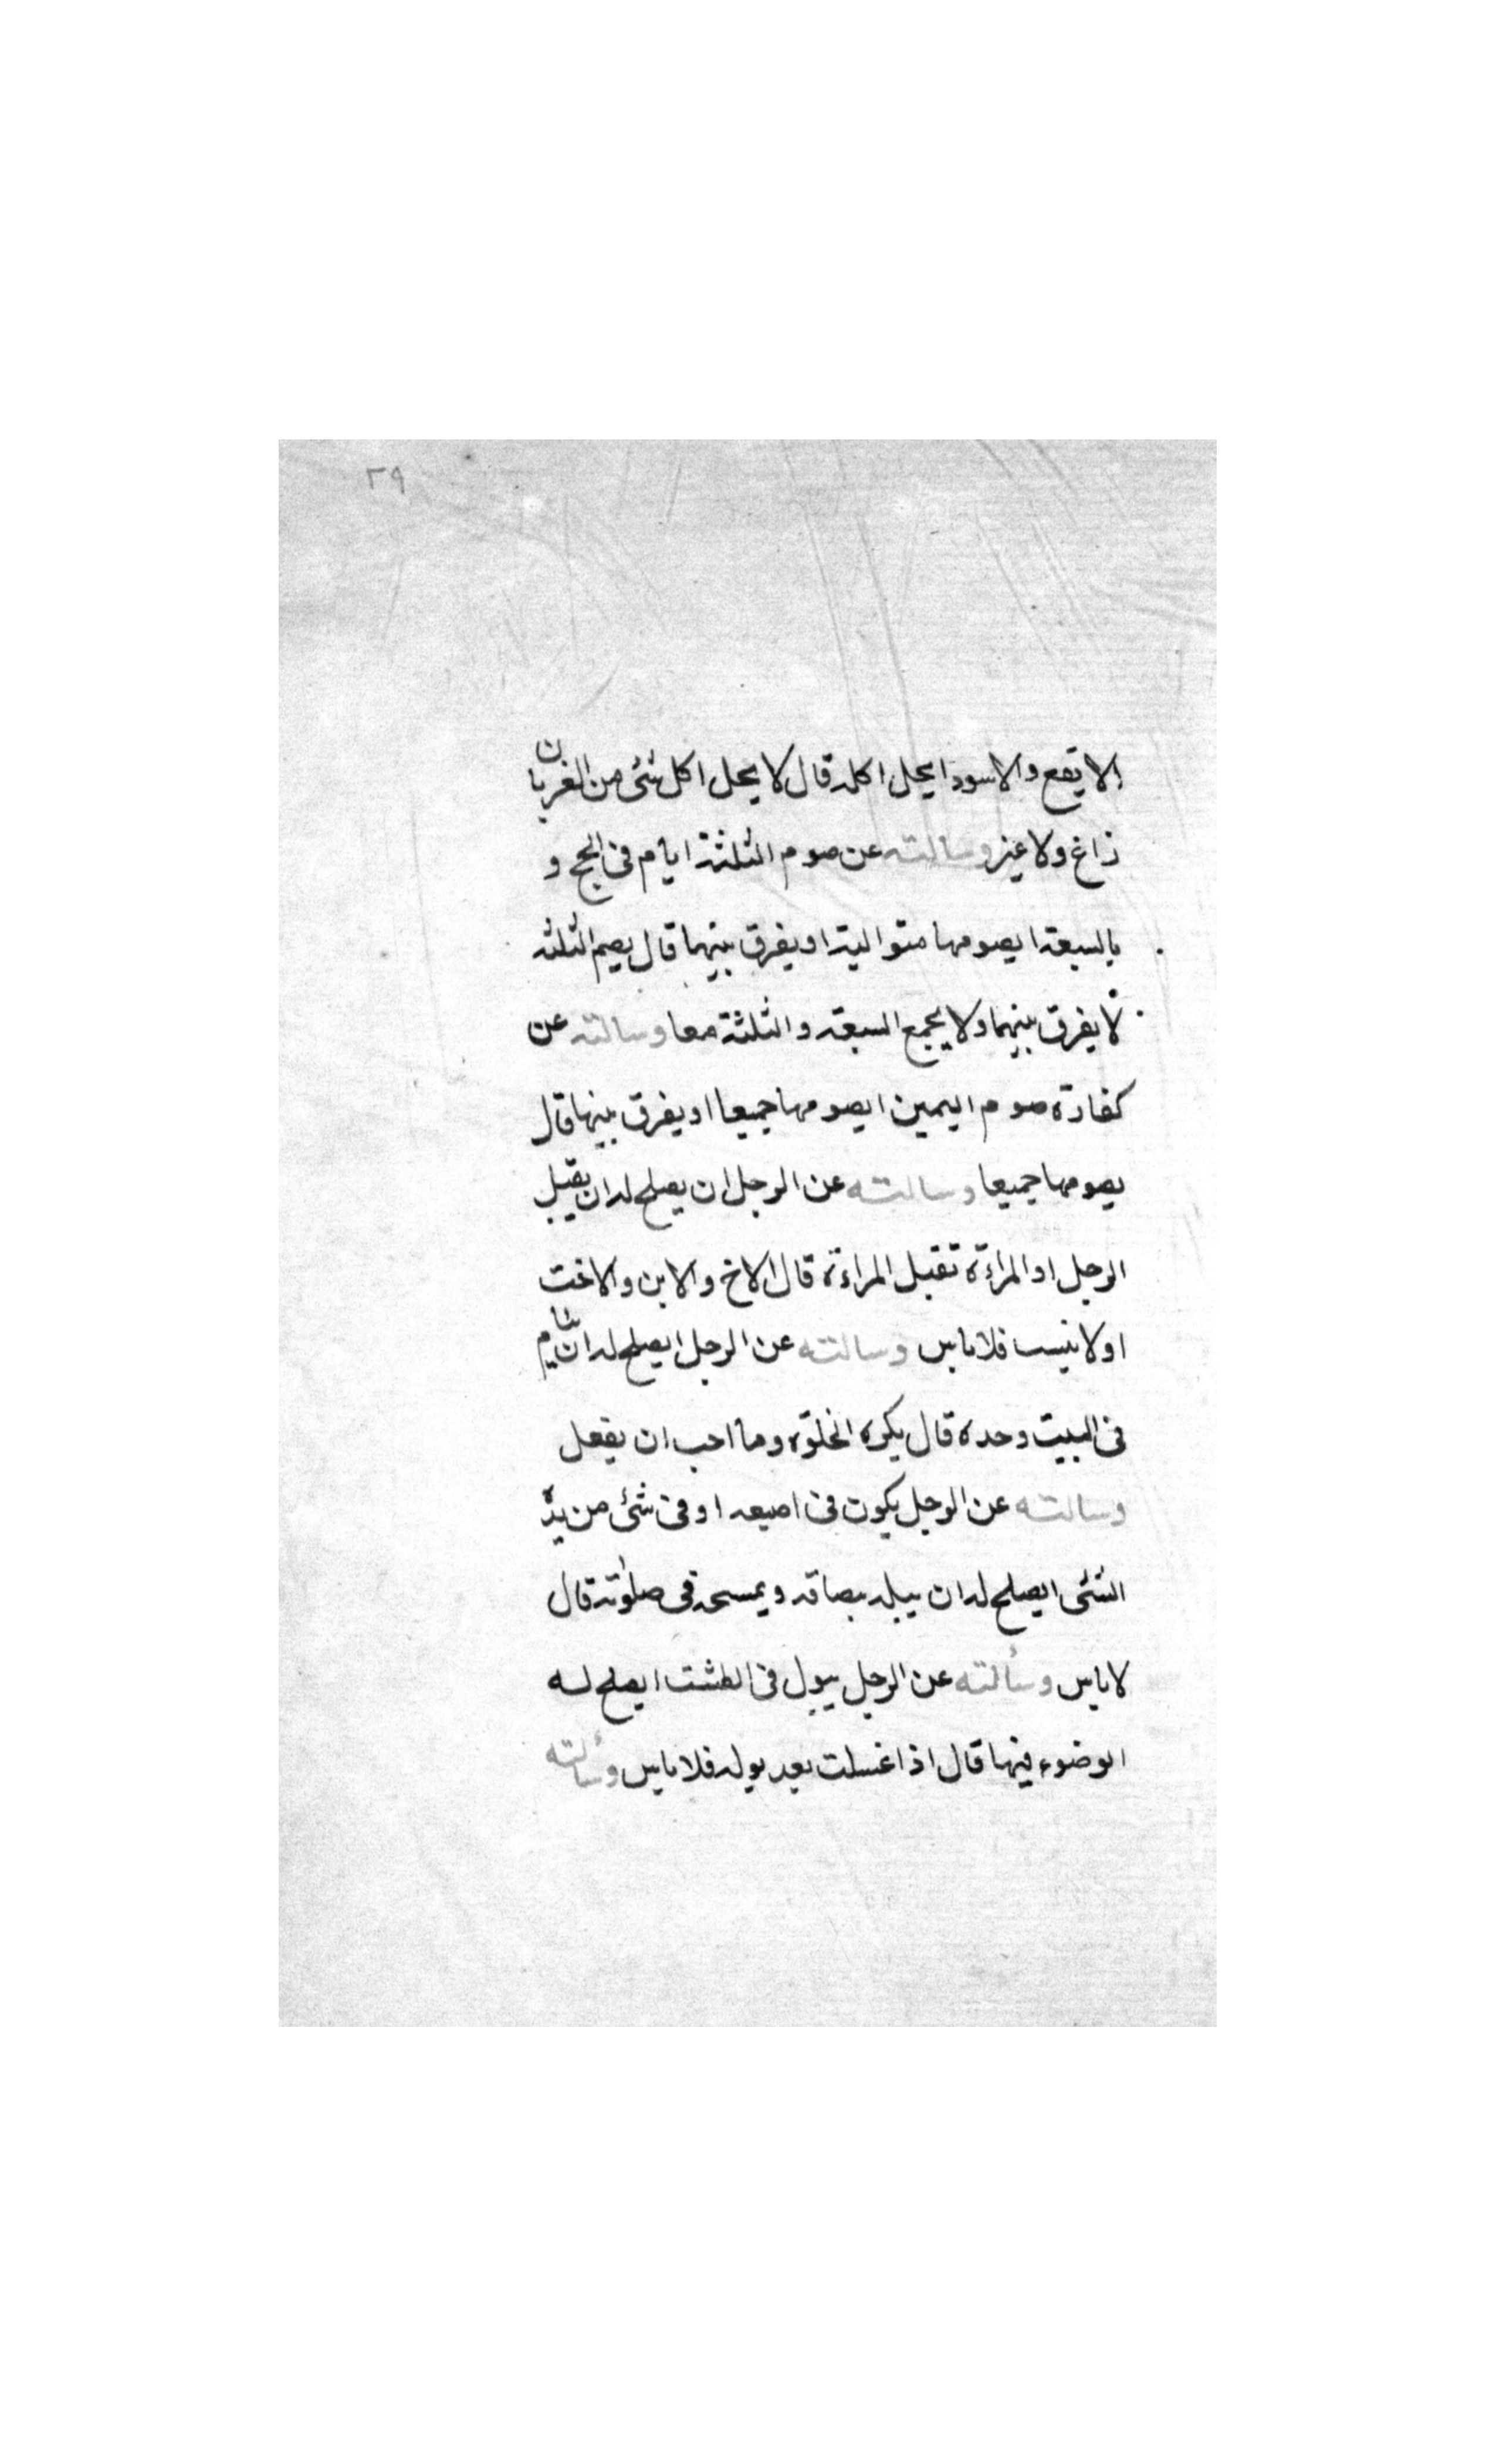 ٢٩
الايقع والاسود ايحل اكله قال لا يحل اكل شئ من الغربان
زاغ ولا غيره وسالته عن صوم الثلثة ايام فى الحج و
بالسبعة ايصومها متوالية او يفرق بينها قال يصيم الثلثة
لا يفرق بينهما ولا يجمع السبعة والثلثة معا وسالته عن
كفارة صوم اليمين ايصومها جميعا او يفرق بينها قال
يصومها جميعا وسالته عن الرجل ان يصلح له ان يقبل
الرجل او المراءة تقبل المراءة قال الاخ والابن والاخت
او لابنيست فلا باس وسالته عن الرجل ايصلح له ان ينام
فى البيت وحده قال يكره الخلوة وما احب ان يفعل
وسالته عن الرجل يكون فى اصبعه او فى شئ من يده
الشئى ايصلح له ان يبله ببصاقه ويمسحه فى صلوته قال
لا باس وسألته عن الرجل يبول فى الطشت ايصلح له
الوضوء فيها قال اذا غسلت بعد بوله فلا باس وسألته